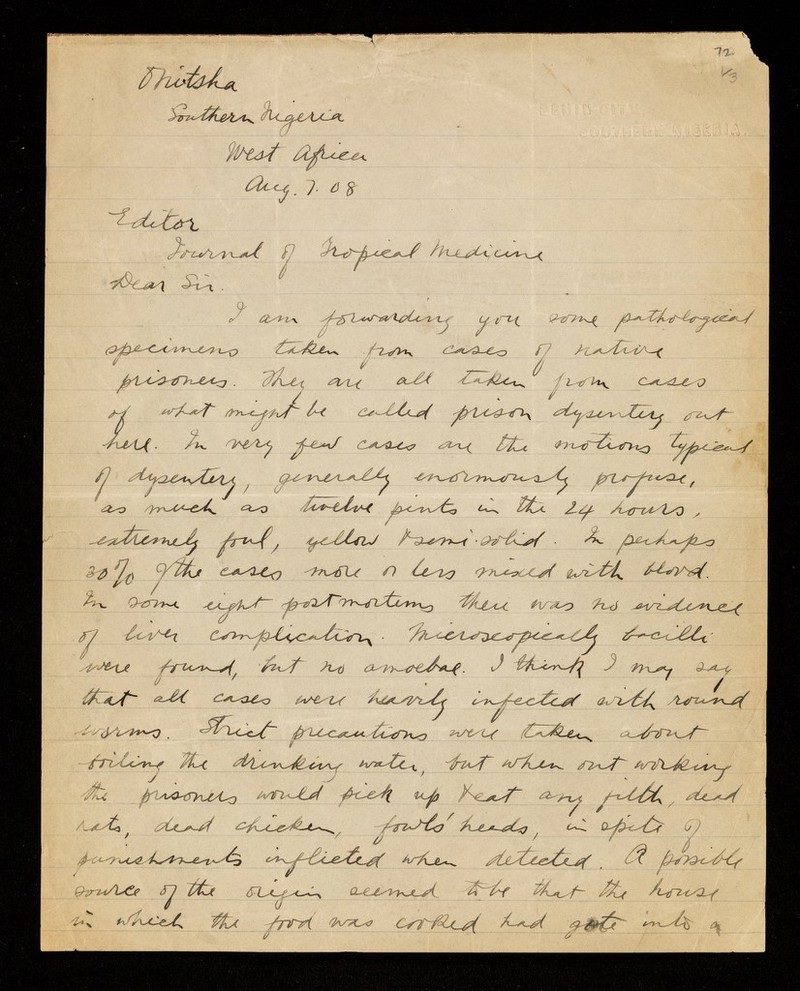 72
1/3
BENIN CITY
SOUTHERN NIGERIA.
Onitsha
Southern Nigeria
West Africa
Aug. 7. 08
Editor
Journal of Tropical Medicine
Dear Sir.
I am forwarding you some pathological
specimens taken from cases of native
prisoners. They are all taken from cases
of what might be called prison dysentery out
here. In very few cases are the motions typical
of dysentery, generally enormously profuse,
as much as twelve pints in the 24 hours,
extremely foul, yellow & semi-solid. In perhaps
30% of the cases more or less mixed with blood.
In some eight postmortems there was no evidence
of liver complication. Microscopically bacilli
were found, but no amoebae. I think I may say
that all cases were heavily infected with round
worms. Strict precautions were taken about
boiling the drinking water, but when out working
the prisoners would pick up & eat any filth, dead
rats, dead chicken, fowls' heads, in spite of
punishments inflicted when detected. A possible
source of the origin seemed to be that the house
in which the food was cooked had into a